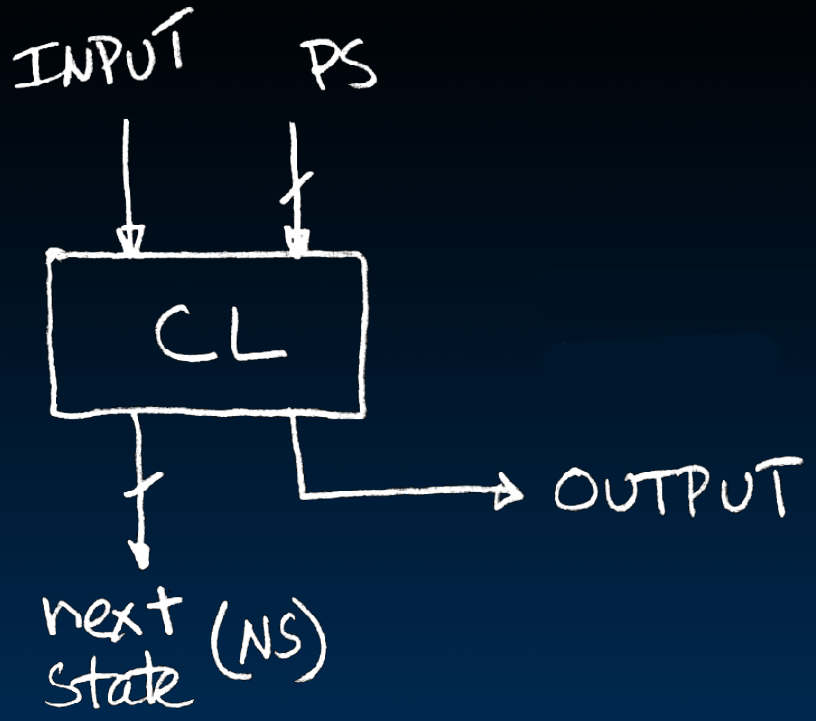 INPUT PS
CL
OUTPUT
next (NS)
state